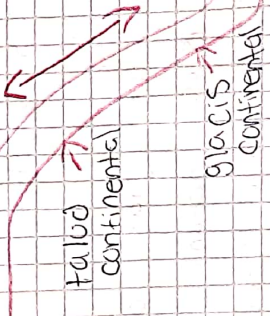 talud
continental
glacis
continental